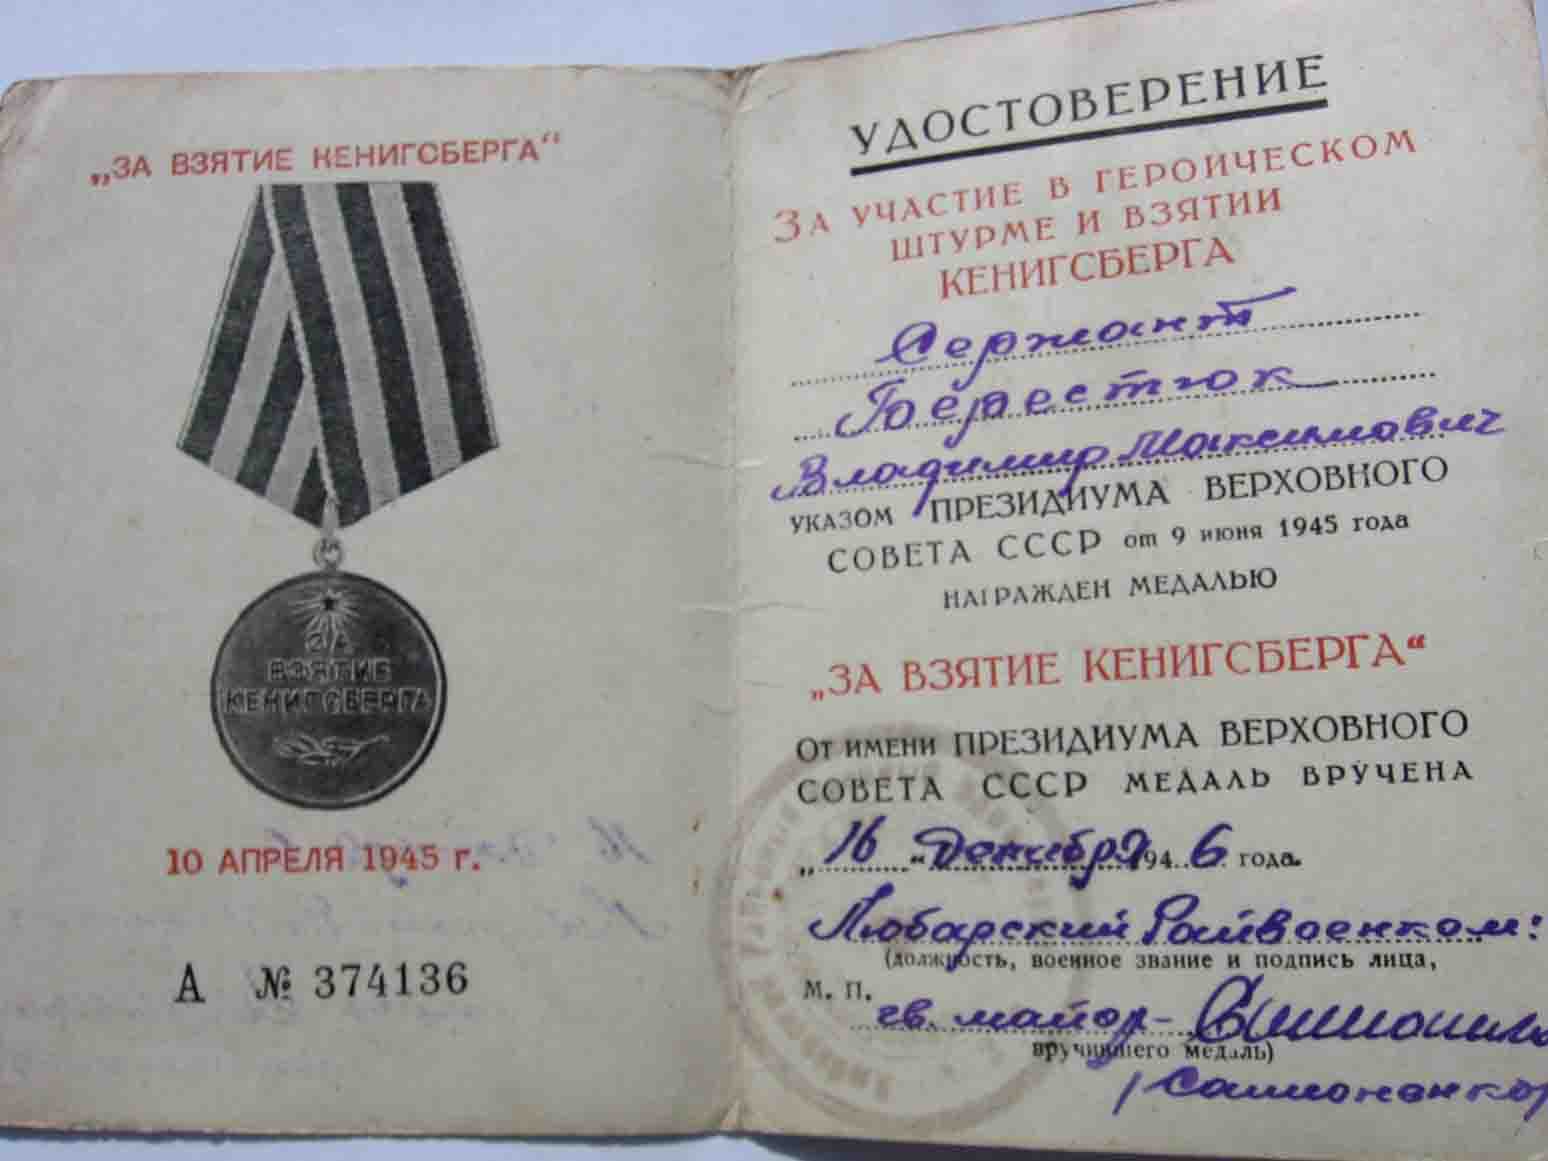 „ЗА ВЗЯТИЕ КЕНИГСБЕРГА“
ЗА
ВЗЯТИЕ
КЕНИГСБЕРГА
10 АПРЕЛЯ 1945 г.
А № 374136
УДОСТОВЕРЕНИЕ
ЗА УЧАСТИЕ В ГЕРОИЧЕСКОМ
ШТУРМЕ И ВЗЯТИИ
КЕНИГСБЕРГА
Сержант
Берестюк
Владимир Максимович
УКАЗОМ ПРЕЗИДИУМА ВЕРХОВНОГО
СОВЕТА СССР от 9 июня 1945 года
НАГРАЖДЕН МЕДАЛЬЮ
„ЗА ВЗЯТИЕ КЕНИГСБЕРГА“
ОТ ИМЕНИ ПРЕЗИДИУМА ВЕРХОВНОГО
СОВЕТА СССР МЕДАЛЬ ВРУЧЕНА
„16“ Декабря 1946 года.
Любарский Райвоенком:
(должность, военное звание и подпись лица,
М. П.
гв. майор-
вручившего медаль)